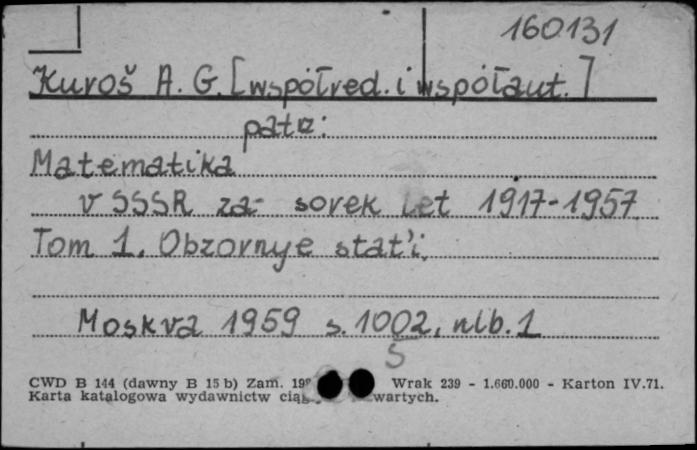 160131
Kuroš A. G. [współred. i współaut.]
patrz:
Matematika
v SSSR za sorek let 1917-1957
Tom 1. Obzornye stat'i.
Moskva 1959 s. 1002, nlb. 1
5
CWD B 144 (dawny B 15 b) Zam. Wrak 239 - 1.660.000 - Karton IV.71.
Karta katalogowa wydawnictw